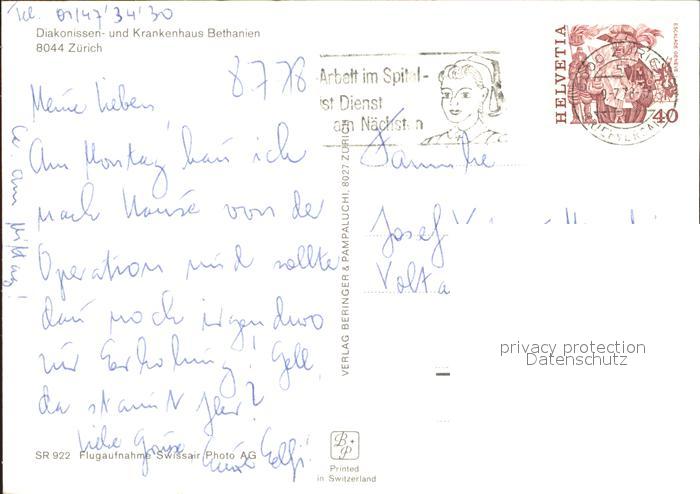 Tel. 01/47'34'30
Diakonissen- und Krankenhaus Bethanien
8044 Zürich
8778
Meine Lieben
Am Montag kan ich
nach Hause von der
Operation und sollte
dan noch irgendwo
zur Erholung. Gell,
da staunt Ihr?
Liebe Grüsse
Elfi!
am Mittag!
SR 922 Flugaufnahme Swissair Photo AG
VERLAG BERINGER & PAMPALUCHI, 8027 ZÜRICH
Arbeit im Spital-
ist Dienst
am Nächsten
HELVETIA
ESCALADE GENEVE
40
Familie
Josef
Volta
privacy protection
Datenschutz
B+P
Printed
in Switzerland